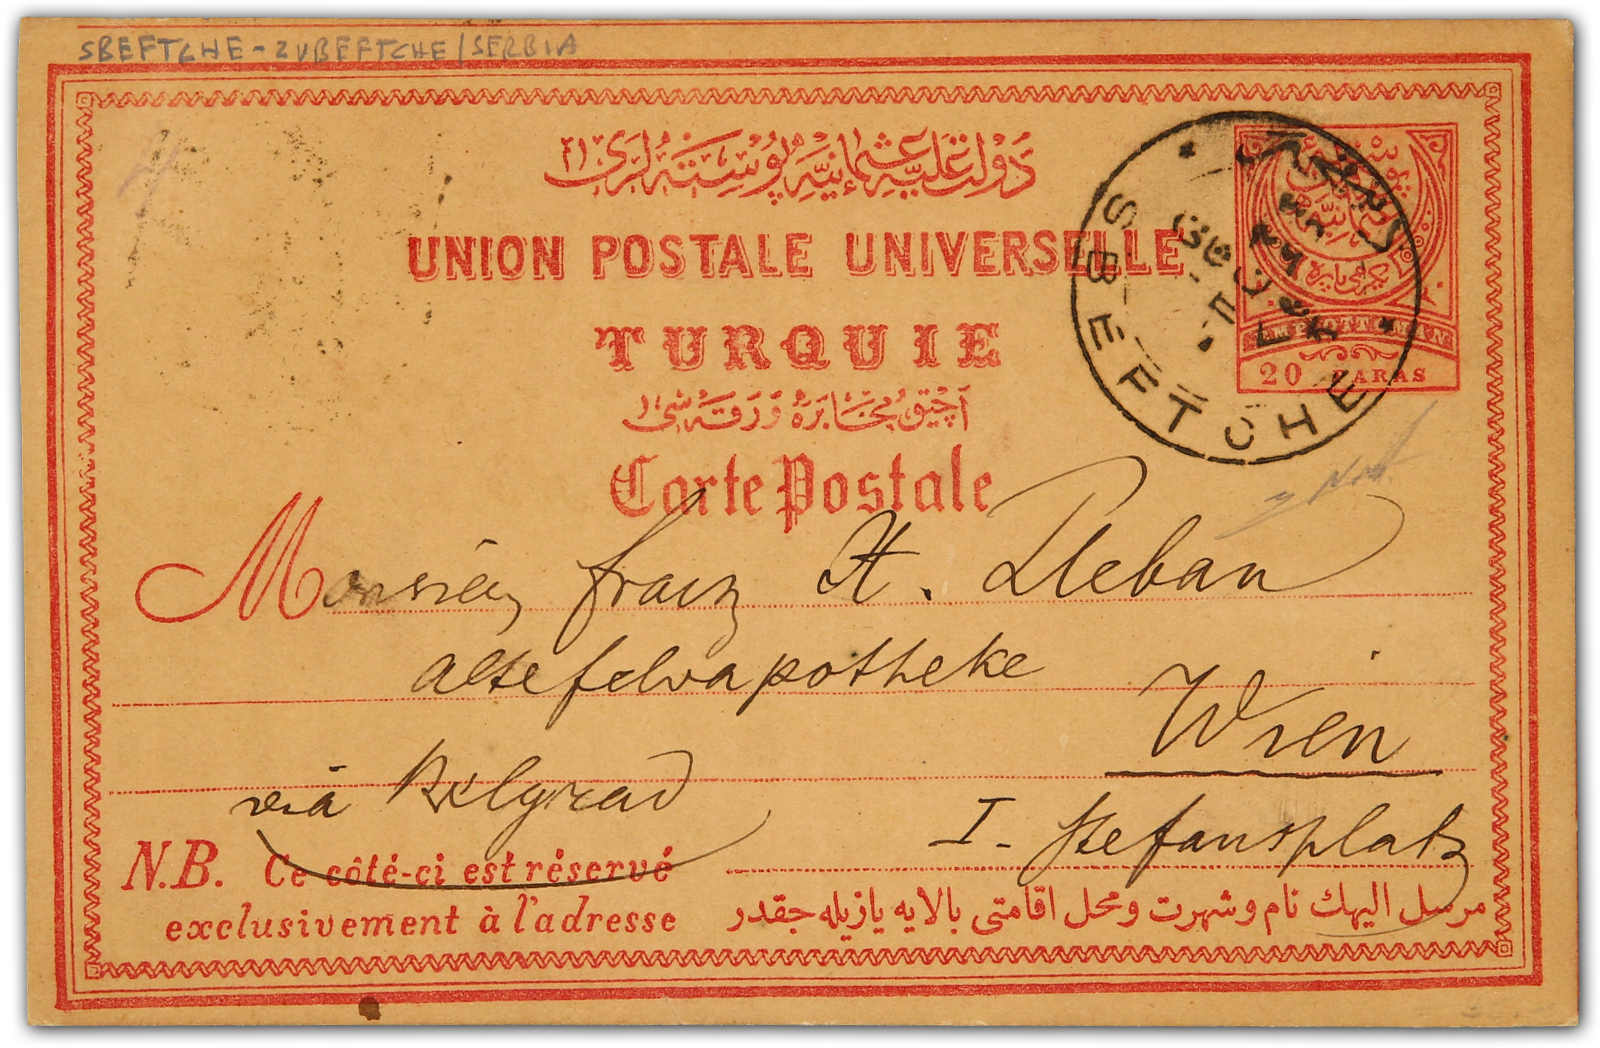 SBEFTCHE - ZUBEFTCHE / SERBIA
دولت علیه عثمانیه پوسته لری
UNION POSTALE UNIVERSELLE
TURQUIE
آچیق مخابره ورقه سی
Carte Postale
EMP. OTTOMAN
20 PARAS
SBEFTCHE
Monsieur Franz H. Pleban
Altefeldapotheke
Wien
via Belgrad
I. Stefansplatz
N.B. Ce côté-ci est réservé
exclusivement à l'adresse
مرسل الیهك نام و شهرت و محل اقامتی بالایه یازیله جقدر